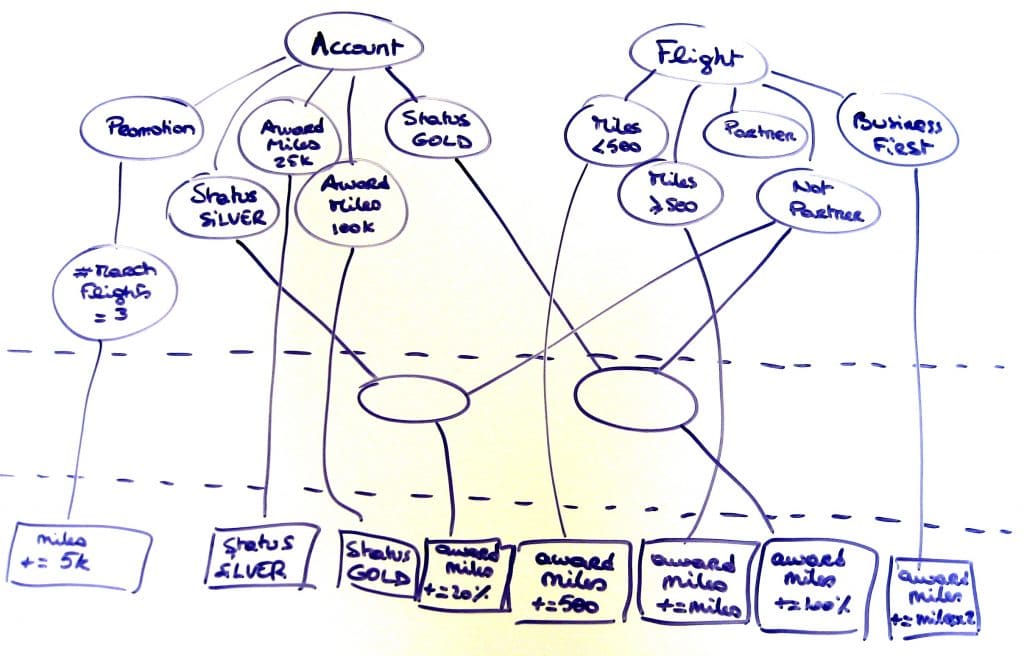 Account
Flight
Promotion
Award
Miles
25k
Status
GOLD
Miles
<500
Partner
Business
First
Status
SILVER
Award
Miles
100k
Miles
≥500
Not
Partner
#March
Flights
= 3
miles
+= 5k
Status
SILVER
Status
GOLD
award
miles
+=20%
award
miles
+=500
award
miles
+=miles
award
miles
+=100%
award
miles
+=milesx2